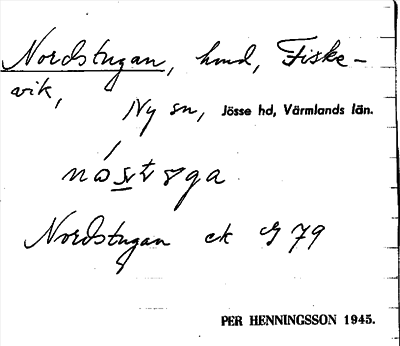 Nordstugan, hmd, Fiske-
vik,
Ny sn, Jösse hd, Värmlands län.
Nordstugan ek 79
PER HENNINGSSON 1945.